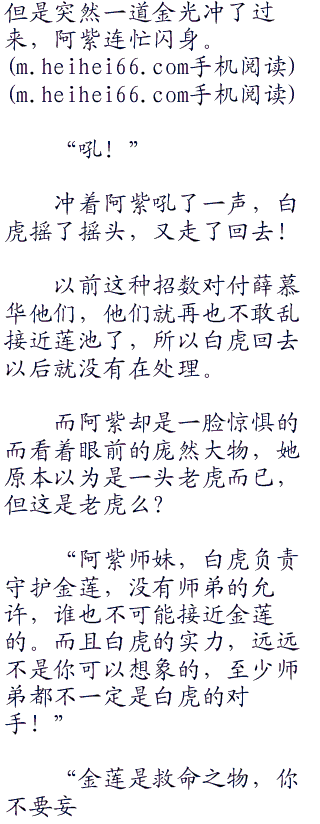 但是突然一道金光冲了过
来，阿紫连忙闪身。
(m.heihei66.com手机阅读)
(m.heihei66.com手机阅读)
“吼！”
冲着阿紫吼了一声，白
虎摇了摇头，又走了回去！
以前这种招数对付薛慕
华他们，他们就再也不敢乱
接近莲池了，所以白虎回去
以后就没有在处理。
而阿紫却是一脸惊惧的
而看着眼前的庞然大物，她
原本以为是一头老虎而已，
但这是老虎么？
“阿紫师妹，白虎负责
守护金莲，没有师弟的允
许，谁也不可能接近金莲
的。而且白虎的实力，远远
不是你可以想象的，至少师
弟都不一定是白虎的对
手！”
“金莲是救命之物，你
不要妄